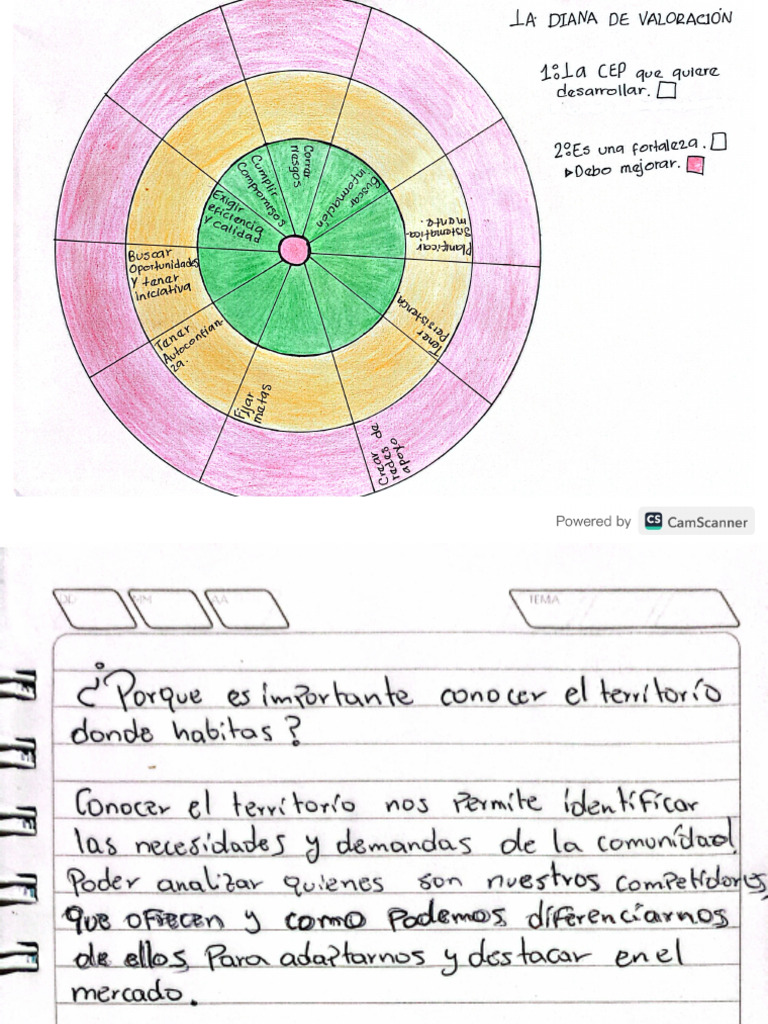 LA DIANA DE VALORACIÓN
1º La CEP que quiere
desarrollar.
2º Es una fortaleza.
Debo mejorar.
Correr
riesgos
Buscar
información
Cumplir
Compromisos
Exigir
eficiencia
y calidad
Planificar
Sistematica-
mente.
Buscar
Oportunidades
y tener
iniciativa
Tener
Persistencia.
Tener
Autoconfian-
za.
Fijar
metas
Crear
redes de
apoyo
Powered by CS CamScanner
DD MM AA TEMA
¿Porque es importante conocer el territorio
donde habitas?
Conocer el territorio nos permite identificar
las necesidades y demandas de la comunidad.
Poder analizar quienes son nuestros competidores,
que ofrecen y como podemos diferenciarnos
de ellos, para adaptarnos y destacar en el
mercado.